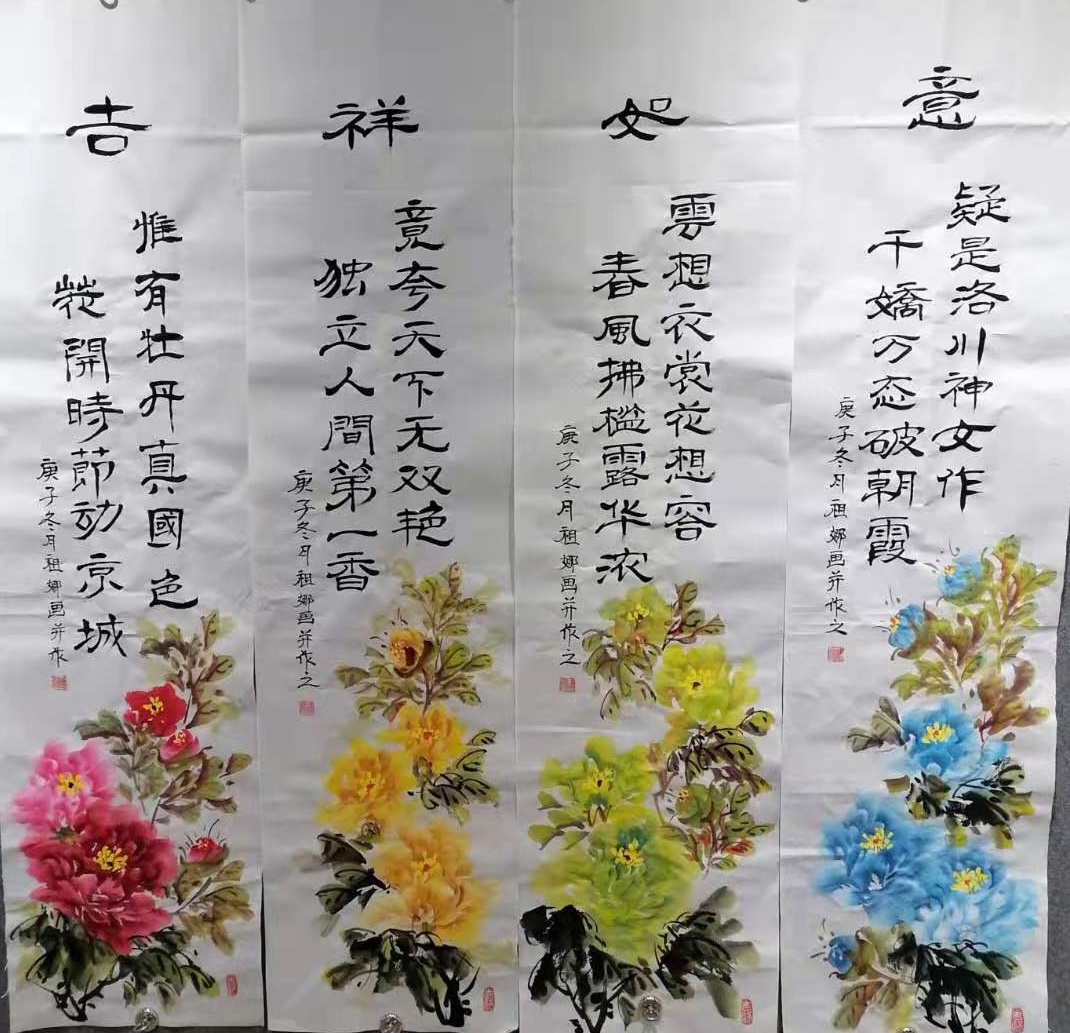 吉
惟有牡丹真國色
開時節动京城
庚子冬月祖娜画并作
祥
竟夸天下无双艳
独立人間第一香
庚子冬月祖娜画并作之
如
雲想衣裳花想容
春風拂槛露华浓
庚子冬月祖娜画并作之
意
疑是洛川神女作
千嬌万态破朝霞
庚子冬月祖娜画并作之